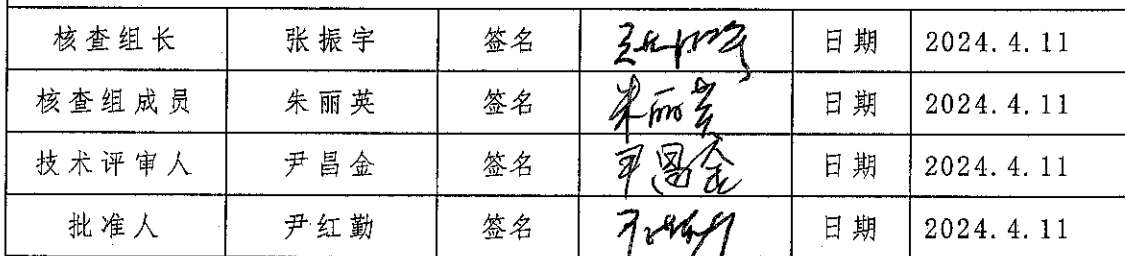 核查组长 张振宇 签名 日期 2024.4.11
核查组成员 朱丽英 签名 朱丽英 日期 2024.4.11
技术评审人 尹昌金 签名 尹昌金 日期 2024.4.11
批准人 尹红勤 签名 日期 2024.4.11